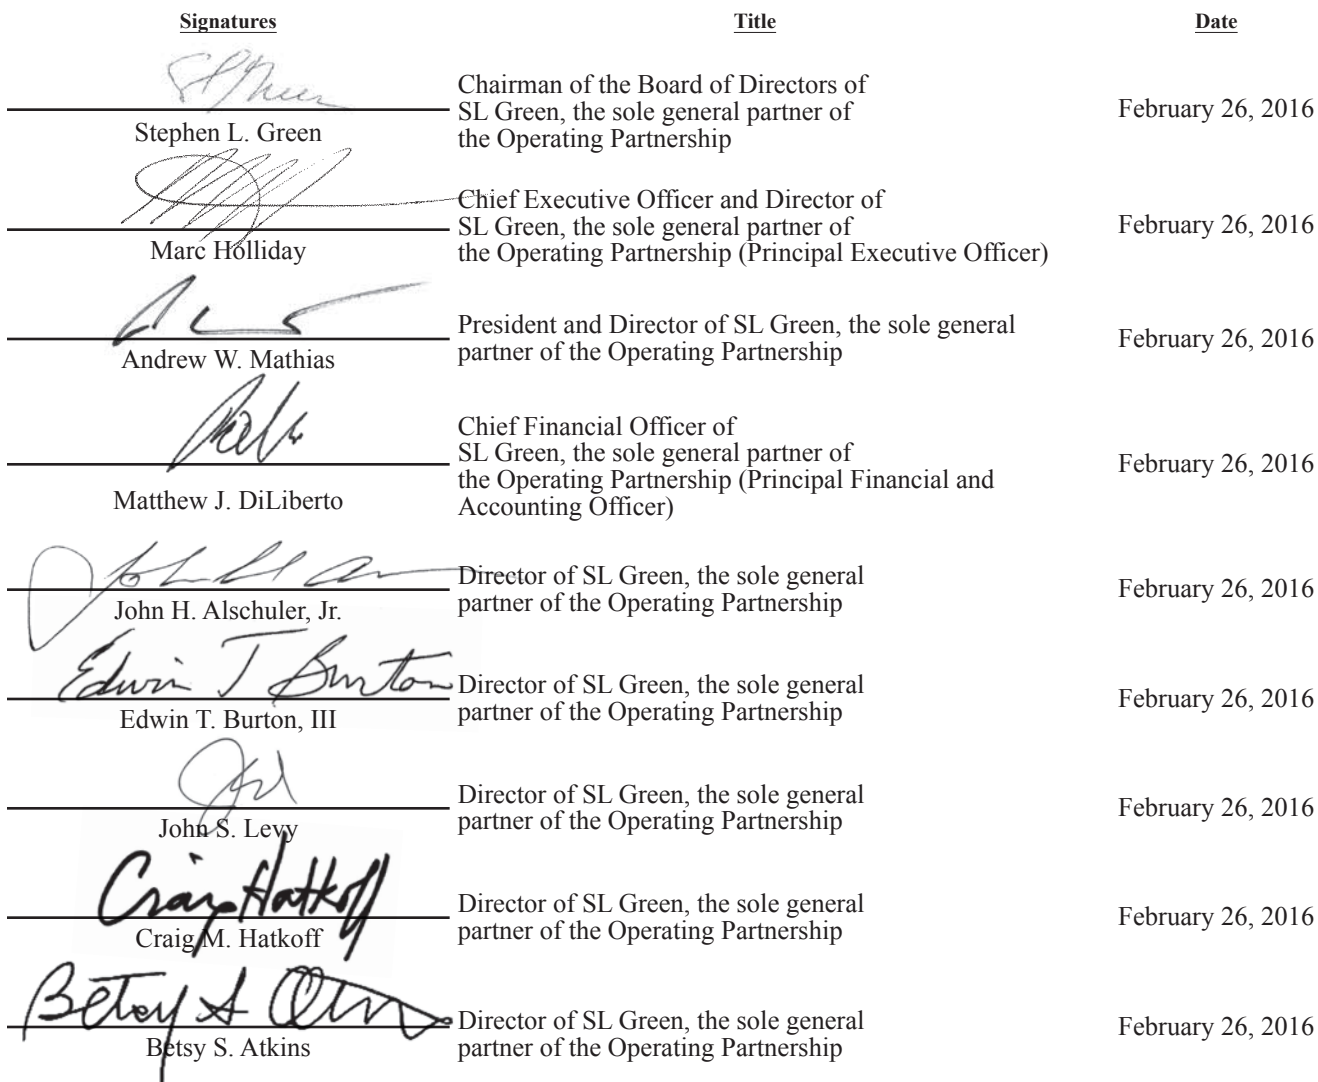 Signatures Title Date
Chairman of the Board of Directors of
SL Green, the sole general partner of
the Operating Partnership
February 26, 2016
Stephen L. Green
Chief Executive Officer and Director of
SL Green, the sole general partner of
the Operating Partnership (Principal Executive Officer)
February 26, 2016
Marc Holliday
President and Director of SL Green, the sole general
partner of the Operating Partnership
February 26, 2016
Andrew W. Mathias
Chief Financial Officer of
SL Green, the sole general partner of
the Operating Partnership (Principal Financial and
Accounting Officer)
February 26, 2016
Matthew J. DiLiberto
Director of SL Green, the sole general
partner of the Operating Partnership
February 26, 2016
John H. Alschuler, Jr.
Edwin T Burton
Director of SL Green, the sole general
partner of the Operating Partnership
February 26, 2016
Edwin T. Burton, III
Director of SL Green, the sole general
partner of the Operating Partnership
February 26, 2016
John S. Levy
Craig Hatkoff
Director of SL Green, the sole general
partner of the Operating Partnership
February 26, 2016
Craig M. Hatkoff
Betsy S
Director of SL Green, the sole general
partner of the Operating Partnership
February 26, 2016
Betsy S. Atkins